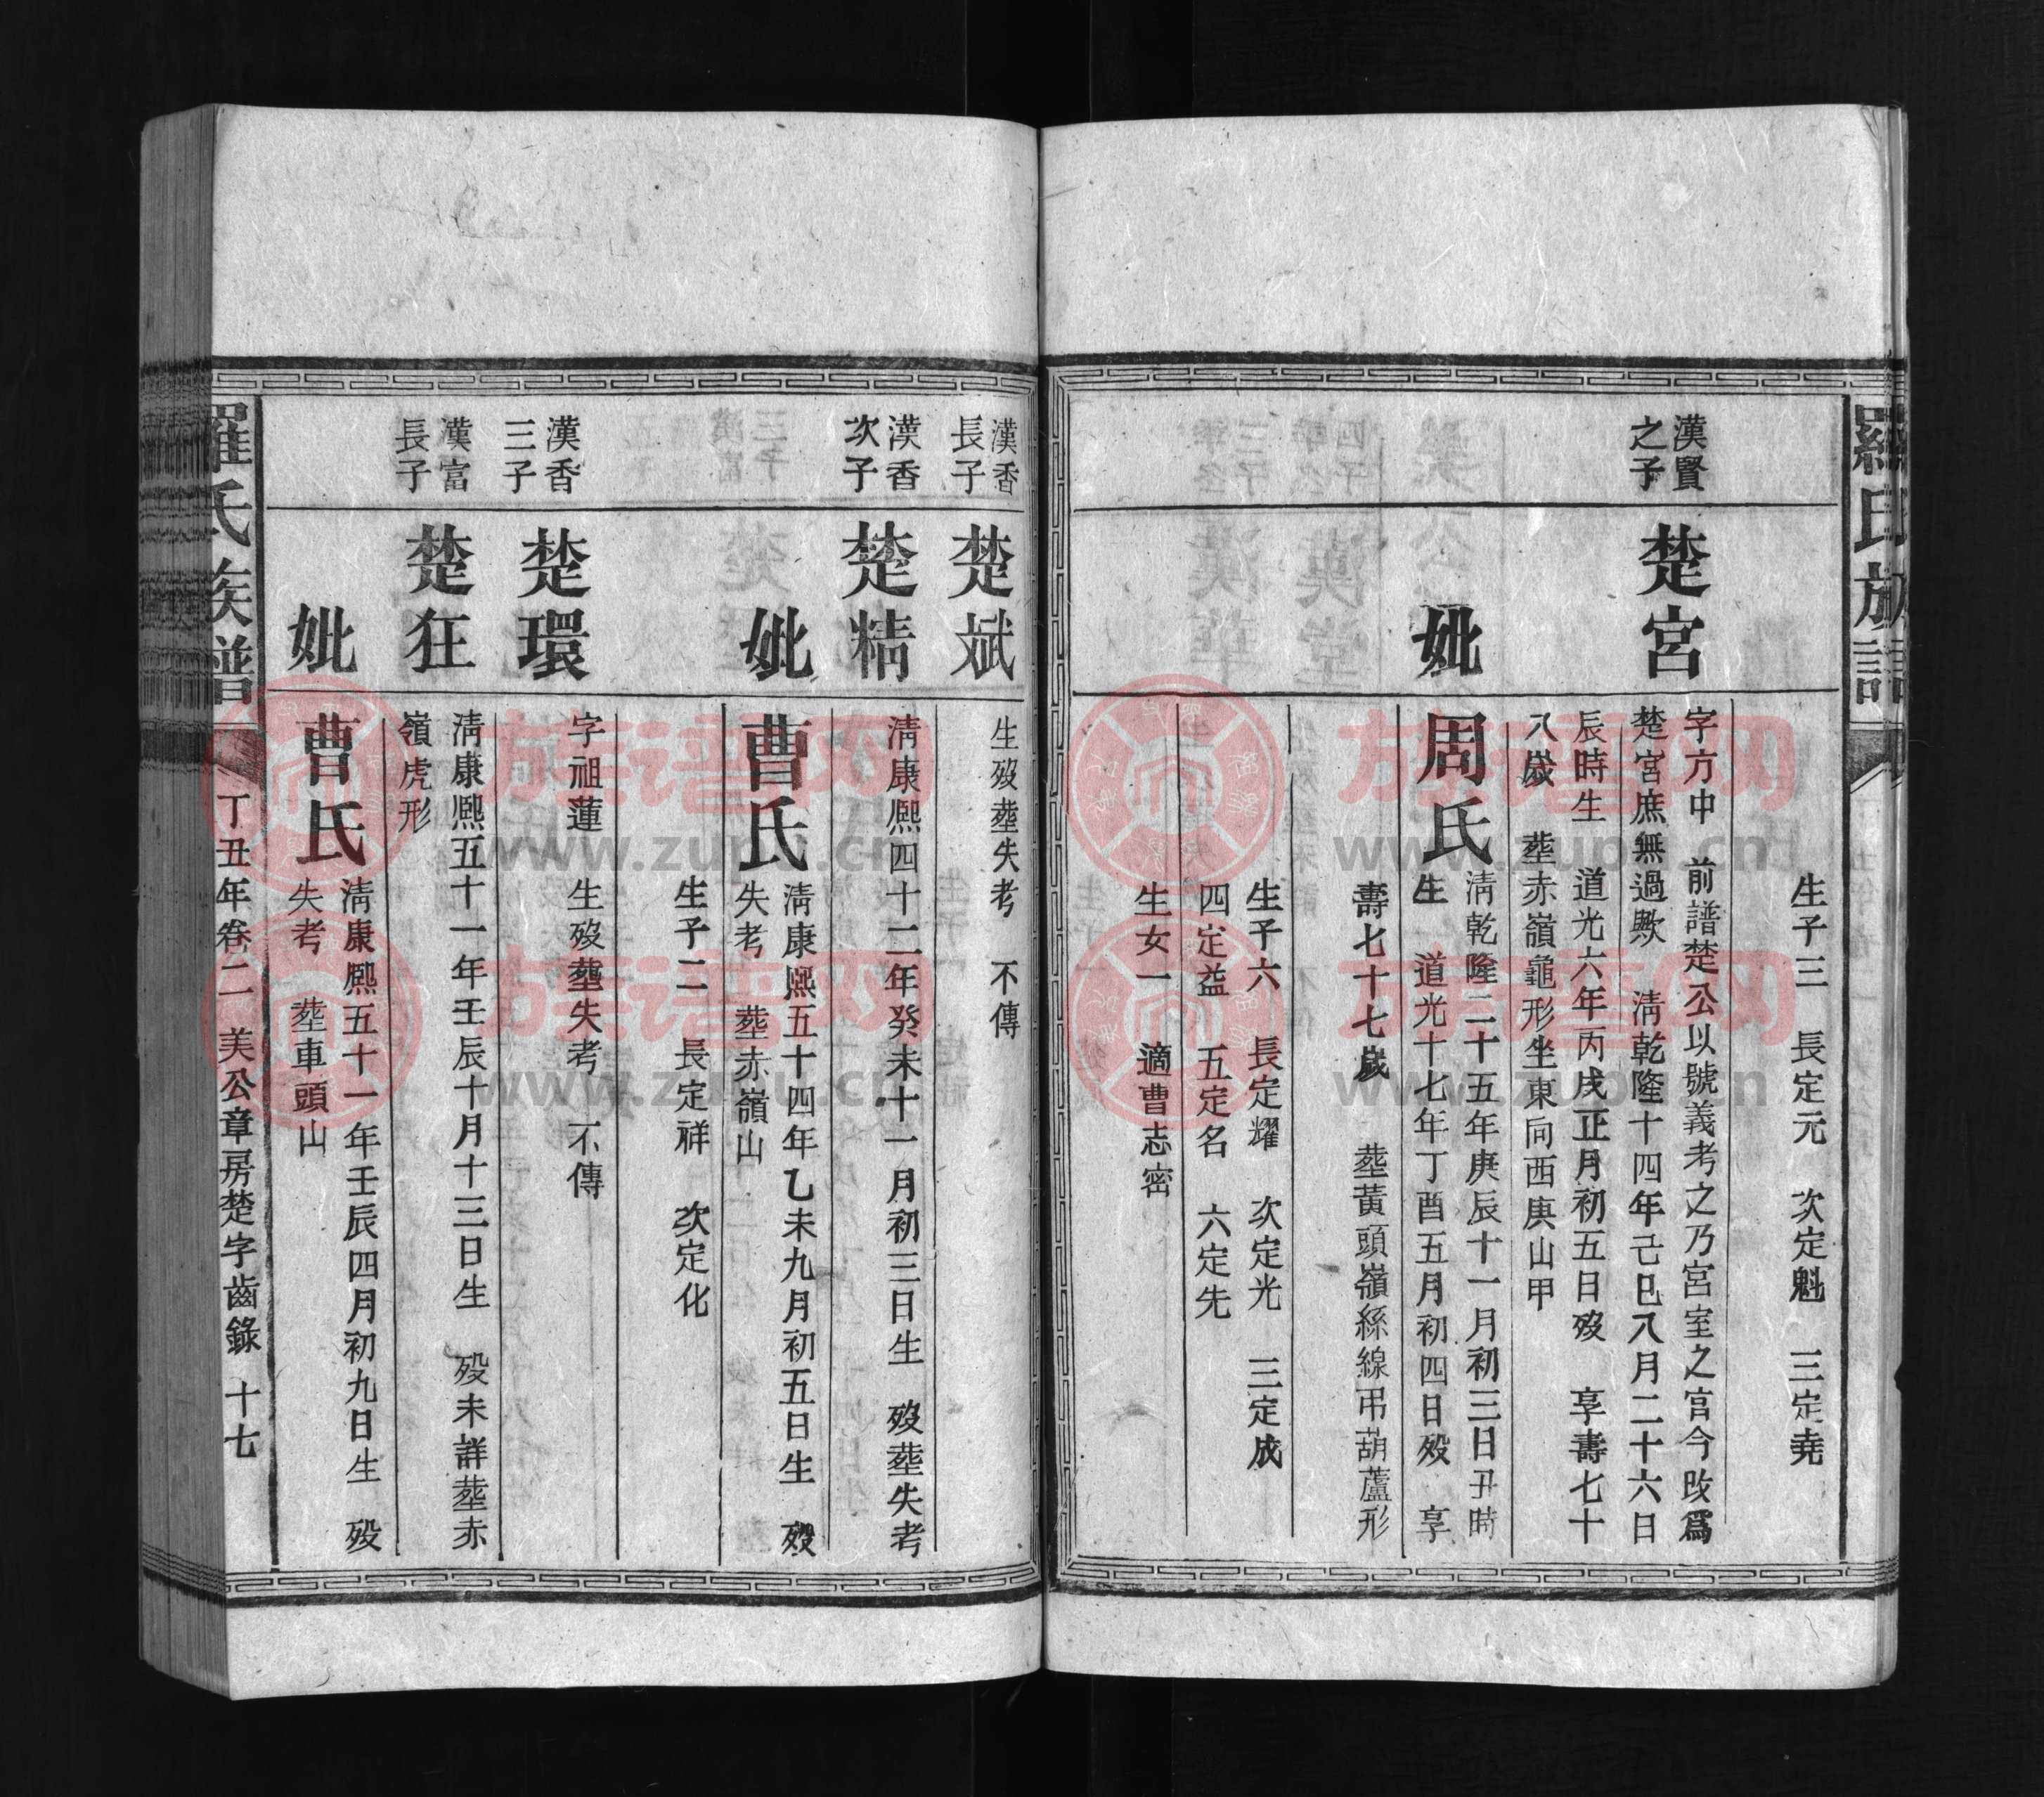 羅氏族譜
生子三　長定元　次定魁　三定堯
漢賢
之子
楚宮
字方中　前譜楚公以號義考之乃宮室之宮今改爲
楚宮庶無過歟　淸乾隆十四年己巳八月二十六日
辰時生　道光六年丙戌正月初五日歿　享壽七十
八歲　塟赤嶺龜形坐東向西庚山甲
妣
周氏
淸乾隆二十五年庚辰十一月初三日丑時
生　道光十七年丁酉五月初四日歿　享
壽七十七歲　塟黃頭嶺絲線吊葫蘆形
生子六　長定耀　次定光　三定成
四定益　五定名　六定先
生女一　適曹志密
漢香
長子
楚斌
生歿塟失考　不傳
漢香
次子
楚精
淸康熙四十二年癸未十一月初三日生　歿塟失考
妣
曹氏
淸康熙五十四年乙未九月初五日生　歿
失考　塟赤嶺山
生子二　長定祥　次定化
漢香
三子
楚環
字祖蓮　生歿塟失考　不傳
漢富
長子
楚狂
淸康熙五十一年壬辰十月十三日生　歿未詳塟赤
嶺虎形
妣
曹氏
淸康熙五十一年壬辰四月初九日生　歿
失考　塟車頭山
羅氏族譜
丁丑年卷二　美公章房楚字齒錄　十七
族谱网
www.zupu.cn
族谱网
www.zupu.cn
族谱网
www.zupu.cn
族谱网
www.zupu.cn